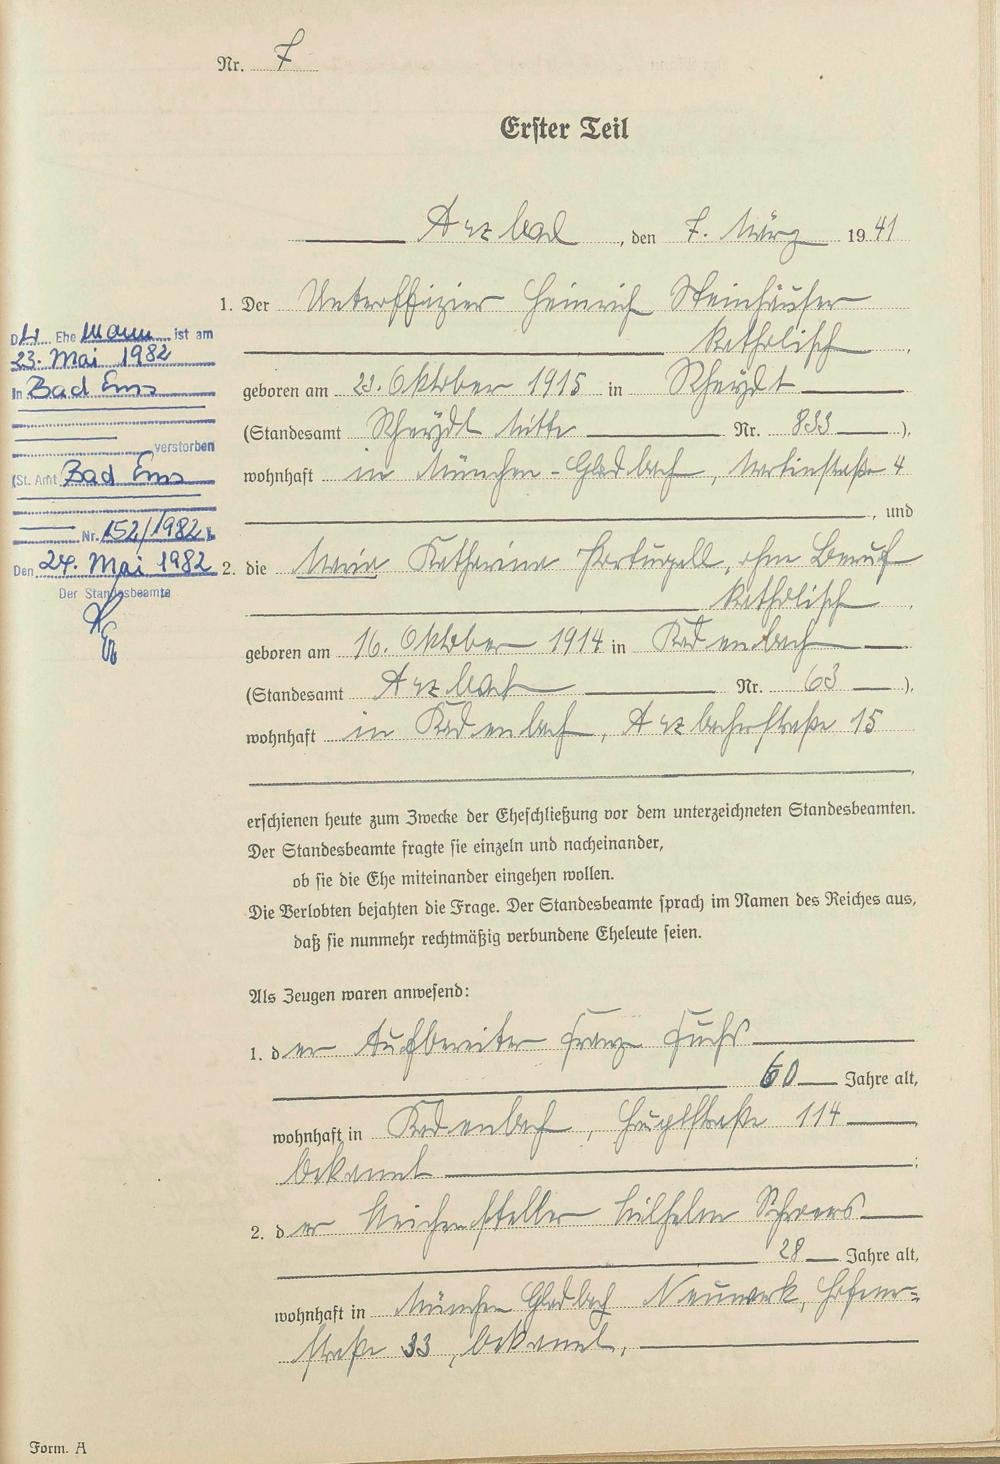 Nr. 7
Erster Teil
Arzbach, den 7. März 1941
1. Der Unteroffizier Heinrich Steinhäuser
katholisch,
geboren am 23. Oktober 1915 in Rheydt
(Standesamt Rheydt Mitte Nr. 833),
wohnhaft in München-Gladbach, Martinstraße 4
, und
2. die Maria Katharina Portugall, ohne Beruf
katholisch,
geboren am 16. Oktober 1914 in Kadenbach
(Standesamt Arzbach Nr. 63),
wohnhaft in Kadenbach, Arzbacherstraße 15
,
erschienen heute zum Zwecke der Eheschließung vor dem unterzeichneten Standesbeamten.
Der Standesbeamte fragte sie einzeln und nacheinander,
ob sie die Ehe miteinander eingehen wollen.
Die Verlobten bejahten die Frage. Der Standesbeamte sprach im Namen des Reiches aus,
daß sie nunmehr rechtmäßig verbundene Eheleute seien.
Als Zeugen waren anwesend:
1. der Aufbereiter Franz Fuchs
60 Jahre alt,
wohnhaft in Kadenbach, Hauptstraße 114
bekannt;
2. der Weichensteller Wilhelm
28 Jahre alt,
wohnhaft in München Gladbach Neuwerk,
straße 33, bekannt.
Form. A
D Ehe Mann ist am
23. Mai 1982
in Bad Ems
verstorben
(St. Amt Bad Ems
Nr. 152/1982).
Den 24. Mai 1982
Der Standesbeamte